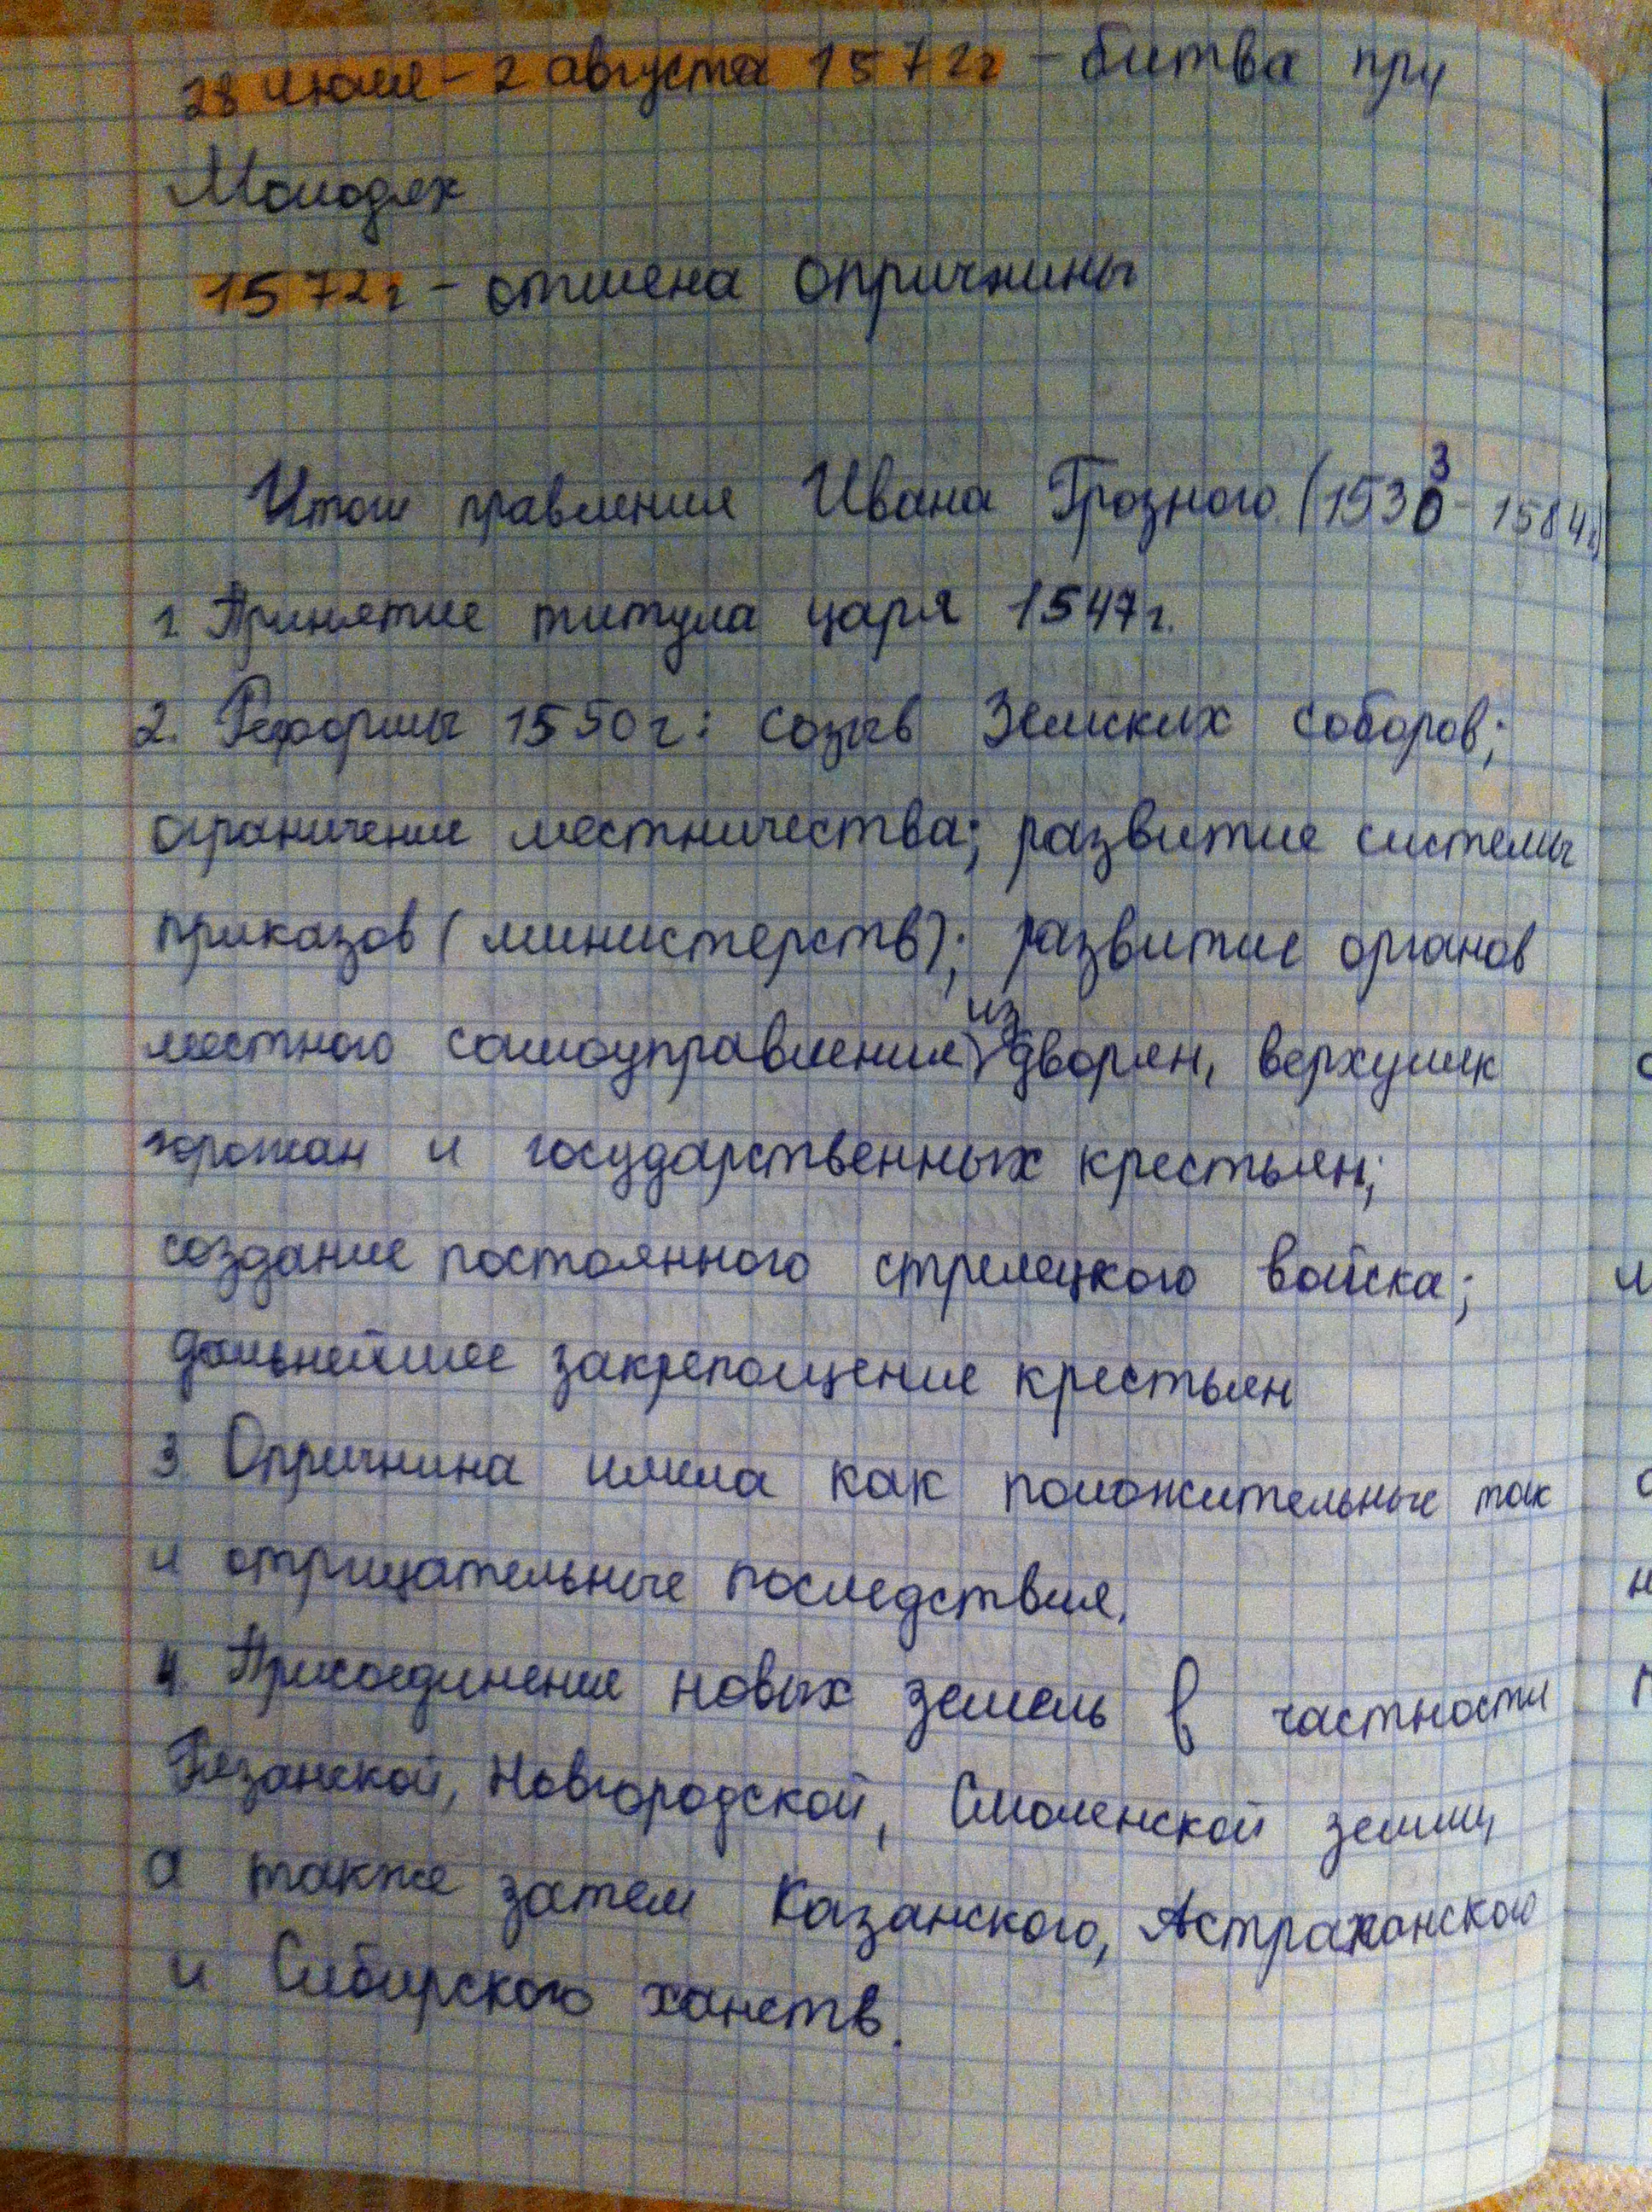 28 июля - 2 августа 1572г - битва при
Молодях
1572г - отмена опричнины
Итоги правления Ивана Грозного. (1533 - 1584г)
1. Принятие титула царя 1547г.
2. Реформы 1550г: созыв Земских соборов;
ограничение местничества; развитие системы
приказов (министерств); развитие органов
местного самоуправления из дворян, верхушек
горожан и государственных крестьян;
создание постоянного стрелецкого войска;
дальнейшее закрепощение крестьян
3. Опричнина имела как положительные так
и отрицательные последствия.
4. Присоединение новых земель в частности
Рязанской, Новгородской, Смоленской земли,
а также затем Казанского, Астраханского
и Сибирского ханств.